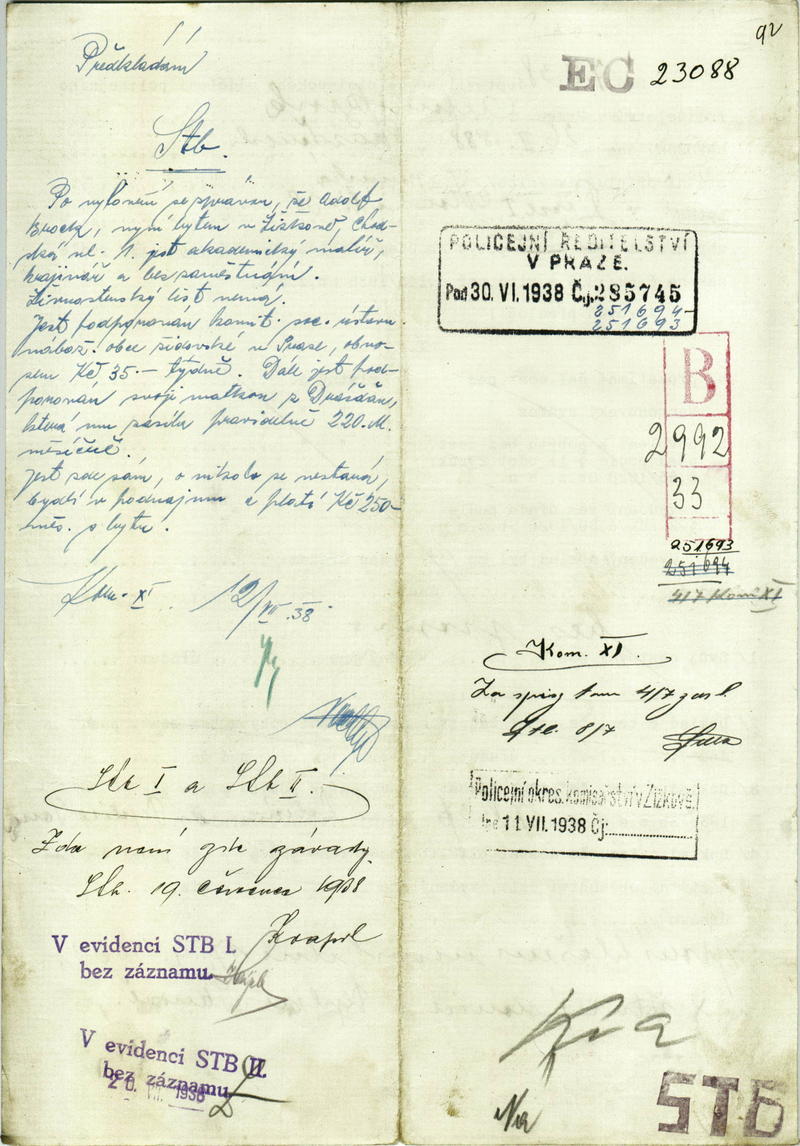 Předkládám
Stb.
Po vyšetření se zpravuje, že Adolf
Brock, nyní bytem v Žižkově, Chod-
ská ul. 1. jest akademický malíř,
krajinář a bez zaměstnání.
Živnostenský list nemá.
Jest podporován komit. soc. ústavu
nábož. obce židovské v Praze, obno-
sem Kč 35.— týdně. Dále jest pod-
porován svojí matkou z Drážďan,
která mu zasílá pravidelně 220.M.
měsíčně.
Jest zde sám, o nikoho se nestará,
bydlí v podnájmu a platí Kč 250-
měs. z bytu.
Kom. XI. 12/VII.38.
Stb I a Stb II.
Zda není zde závady.
Stb. 19. července 1938
V evidenci STB I.
bez záznamu
V evidenci STB II.
bez záznamu
20. VII. 1938
92
EC 23088
POLICEJNÍ ŘEDITELSTVÍ
V PRAZE.
Pod 30. VI. 1938 Čj. 285745
251694
251693
B
2992
33
251693
251694
417 Kom XI
Kom. XI.
Za spisy 4/7
8/7
Policejní okres. komisařství v Žižkově.
11 VII. 1938 Čj.
STB